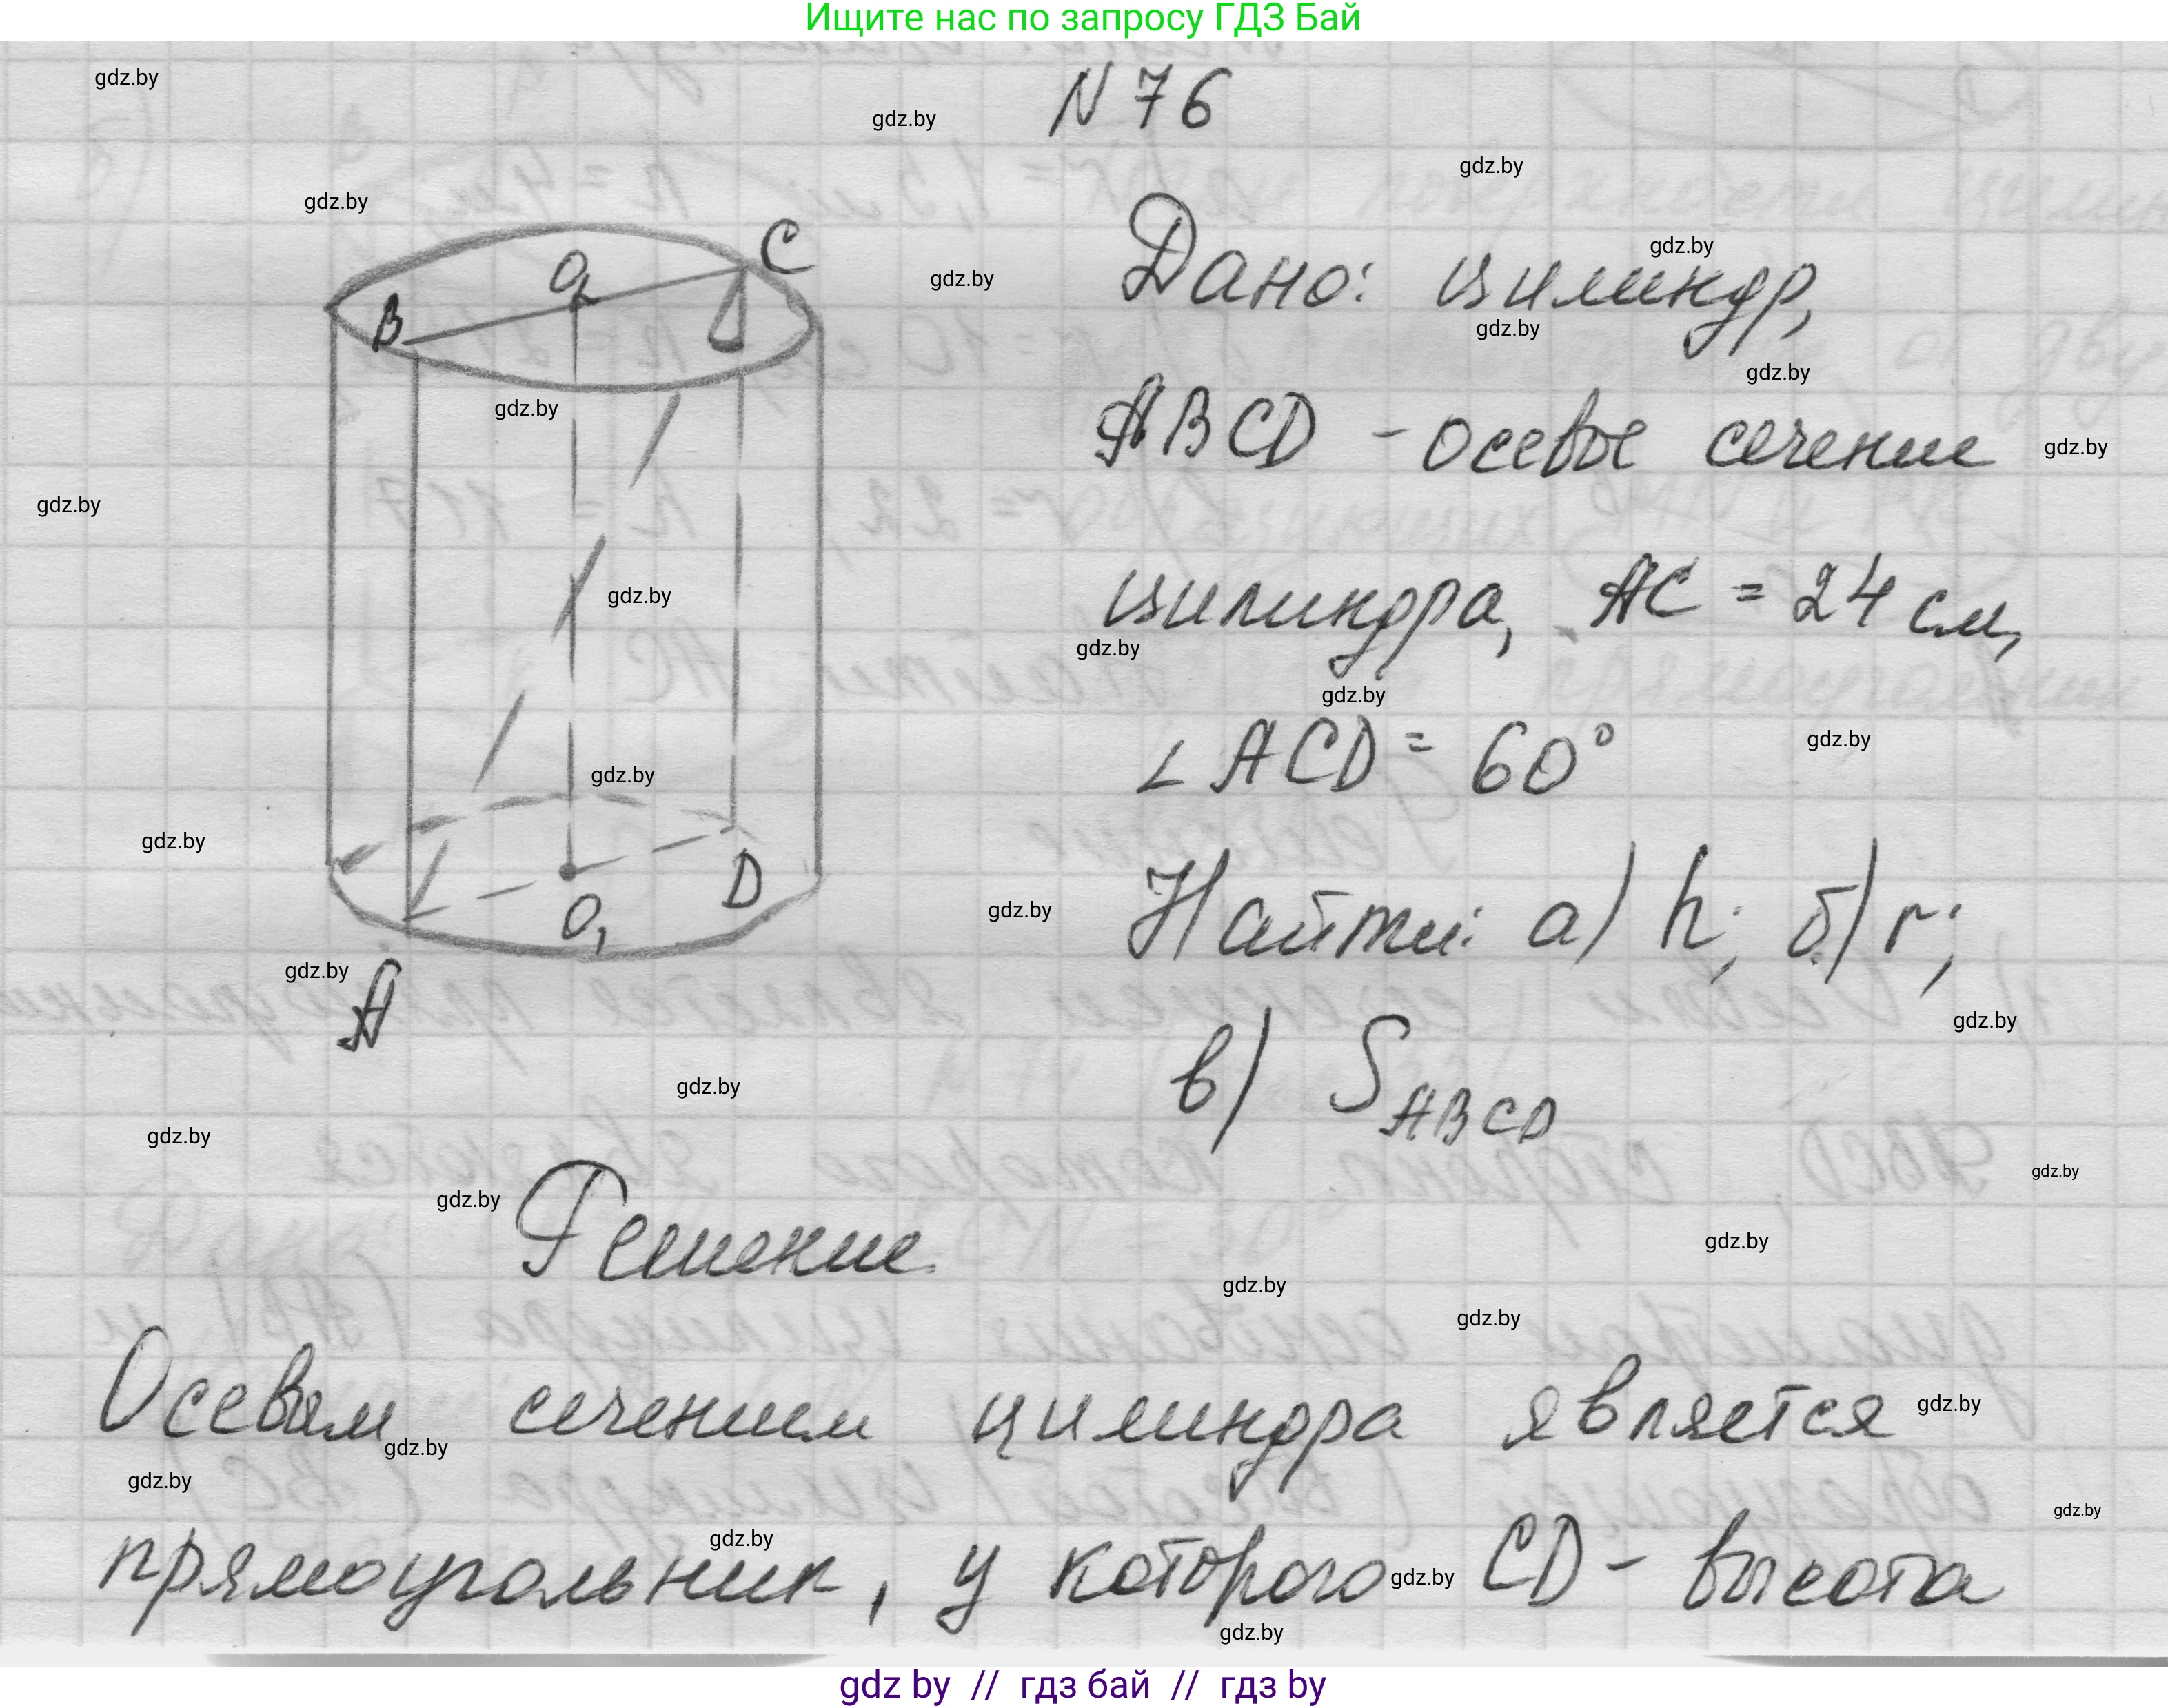 Ищите нас по запросу ГДЗ Бай
N 76
Дано: цилиндр,
ABCD - осевое сечение
цилиндра, AC = 24 см,
∠ ACD = 60°
Найти: а) h; б) r;
в) S ABCD
B O C
A O₁ D
Решение
Осевым сечением цилиндра является
прямоугольник, у которого CD - высота
gdz.by
gdz by // гдз бай // гдз by